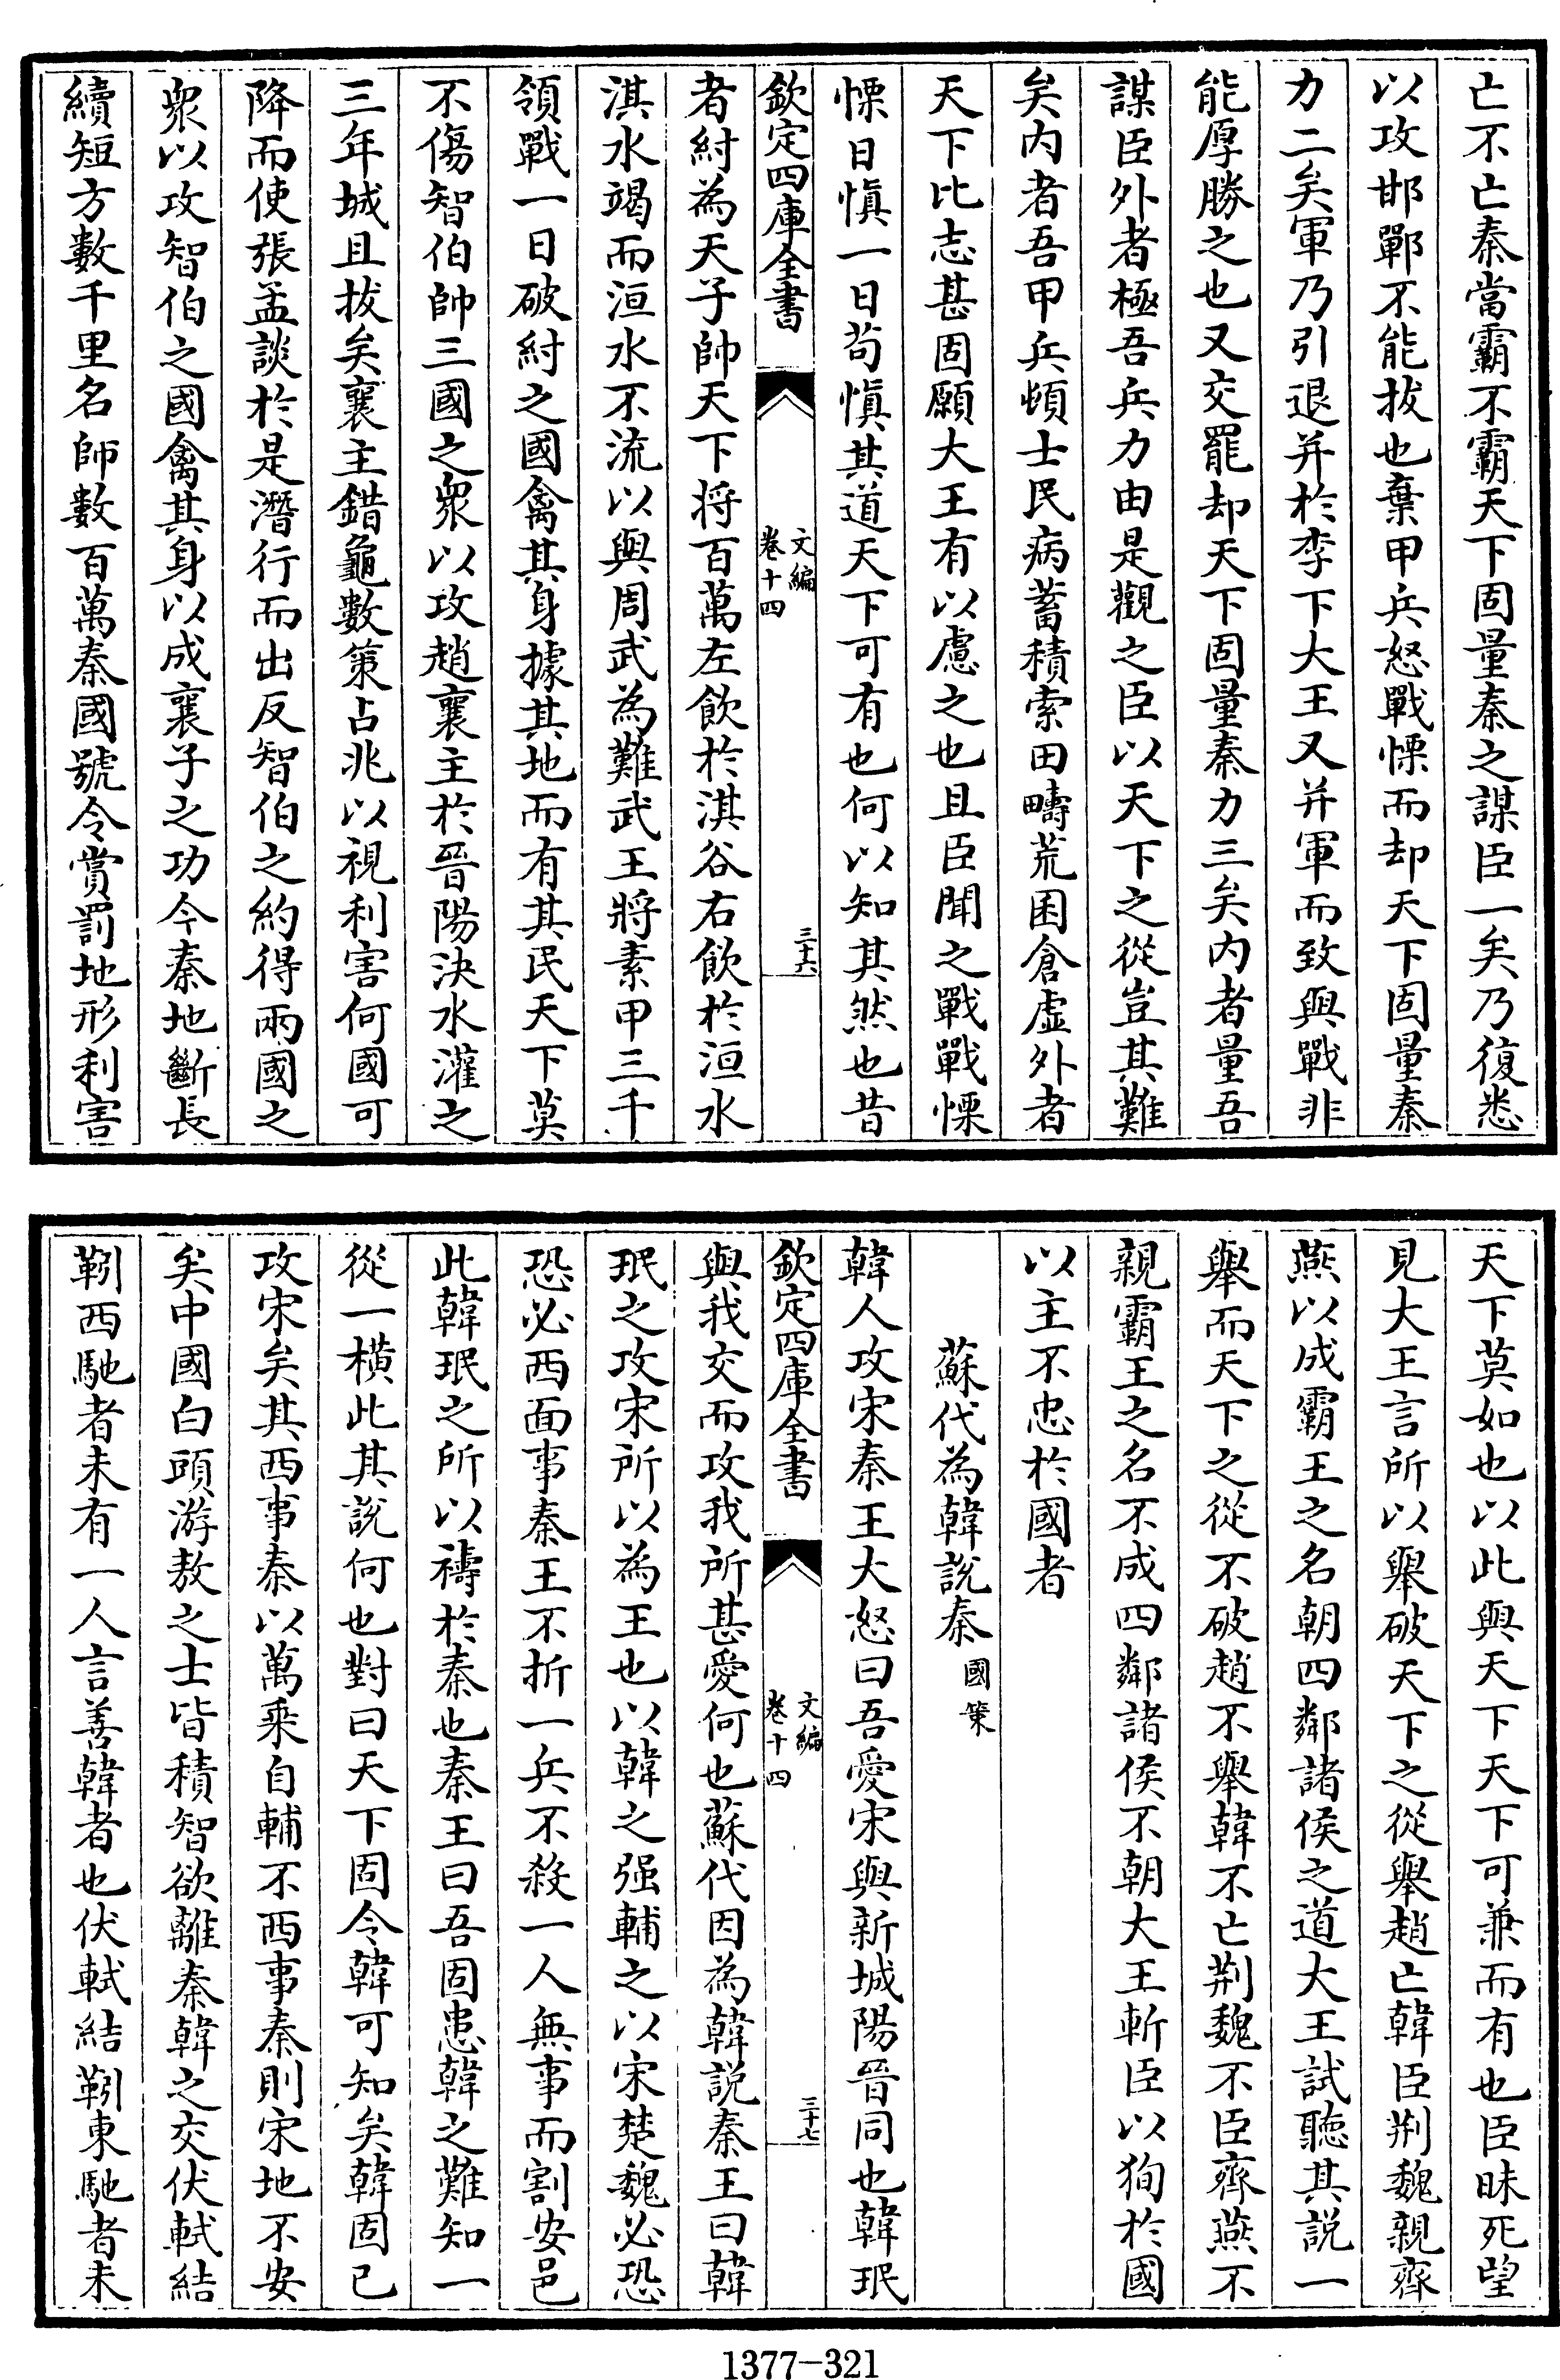 亡不亡秦當霸不霸天下固量秦之謀臣一矣乃復悉
以攻邯鄲不能拔也棄甲兵怒戰慄而却天下固量秦
力二矣軍乃引退并於李下大王又并軍而致與戰非
能厚勝之也又交罷却天下固量秦力三矣内者量吾
謀臣外者極吾兵力由是觀之臣以天下之從豈其難
矣内者吾甲兵頓士民病蓄積索田疇荒囷倉虛外者
天下比志甚固願大王有以慮之也且臣聞之戰戰慄
慄日慎一日苟慎其道天下可有也何以知其然也昔
欽定四庫全書
文編
卷十四
三十六
者紂為天子帥天下将百萬左飲於淇谷右飲於洹水
淇水竭而洹水不流以與周武為難武王將素甲三千
領戰一日破紂之國禽其身據其地而有其民天下莫
不傷智伯帥三國之衆以攻趙襄主於晉陽決水灌之
三年城且拔矣襄主錯龜數策占兆以視利害何國可
降而使張孟談於是潛行而出反智伯之約得兩國之
衆以攻智伯之國禽其身以成襄子之功今秦地斷長
續短方數千里名師數百萬秦國號令賞罰地形利害
天下莫如也以此與天下天下可兼而有也臣昧死望
見大王言所以舉破天下之從舉趙亡韓臣荆魏親齊
燕以成霸王之名朝四鄰諸侯之道大王試聽其說一
舉而天下之從不破趙不舉韓不亡荆魏不臣齊燕不
親霸王之名不成四鄰諸侯不朝大王斬臣以狥於國
以主不忠於國者
蘇代為韓說秦 國策
韓人攻宋秦王大怒曰吾愛宋與新城陽晉同也韓珉
欽定四庫全書
文編
卷十四
三十七
與我交而攻我所甚愛何也蘇代因為韓說秦王曰韓
珉之攻宋所以為王也以韓之强輔之以宋楚魏必恐
恐必西面事秦王不折一兵不殺一人無事而割安邑
此韓珉之所以禱於秦也秦王曰吾固患韓之難知一
從一橫此其說何也對曰天下固令韓可知矣韓固已
攻宋矣其西事秦以萬乘自輔不西事秦則宋地不安
矣中國白頭游敖之士皆積智欲離秦韓之交伏軾結
靷西馳者未有一人言善韓者也伏軾結靷東馳者未
1377-321